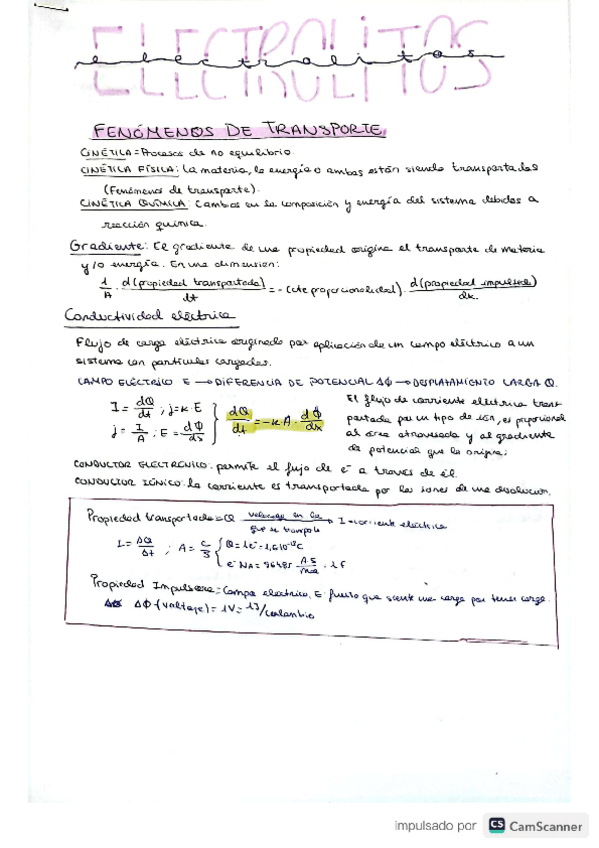 ELECTROLITOS
electrolitos
FENÓMENOS DE TRANSPORTE
CINÉTICA = Procesos de no equilibrio.
CINÉTICA FÍSICA: La materia, la energía o ambas están siendo transportadas
(Fenómenos de transporte).
CINÉTICA QUÍMICA: Cambios en la composición y energía del sistema debidos a
reacción química.
Gradiente: El gradiente de una propiedad origina el transporte de materia
y/o energía. En una dimension:
1/A · d(propiedad transportada)/dt = -(cte proporcionalidad) · d(propiedad impulsora)/dx
Conductividad eléctrica
Flujo de carga eléctrica originado por aplicación de un campo eléctrico a un
sistema con partículas cargadas.
CAMPO ELÉCTRICO E → DIFERENCIA DE POTENCIAL ΔΦ → DESPLAZAMIENTO CARGA Q.
I = dQ/dt ; j = κ·E
j = I/A ; E = dΦ/dx
dQ/dt = -κ·A· dΦ/dx
El flujo de corriente eléctrica trans-
portada por un tipo de ión, es proporcional
al área atravesada y al gradiente
de potencial que la origina:
CONDUCTOR ELECTRÓNICO: permite el flujo de e⁻ a través de él.
CONDUCTOR IÓNICO: la corriente es transportada por los iones de una disolucion.
Propiedad transportada = Q velocidad en la que se transporta → I = corriente eléctrica
I = ΔQ/Δt ; A = C/S { Q = 1e⁻ = 1,6·10⁻¹⁹C
e⁻·NA = 96485 A·s/mol · 1F
Propiedad Impulsora = Campo electrico, E fuerza que siente una carga por tener carga.
ΔΦ (voltaje) = 1V = 1J/culombio
impulsado por CS CamScanner